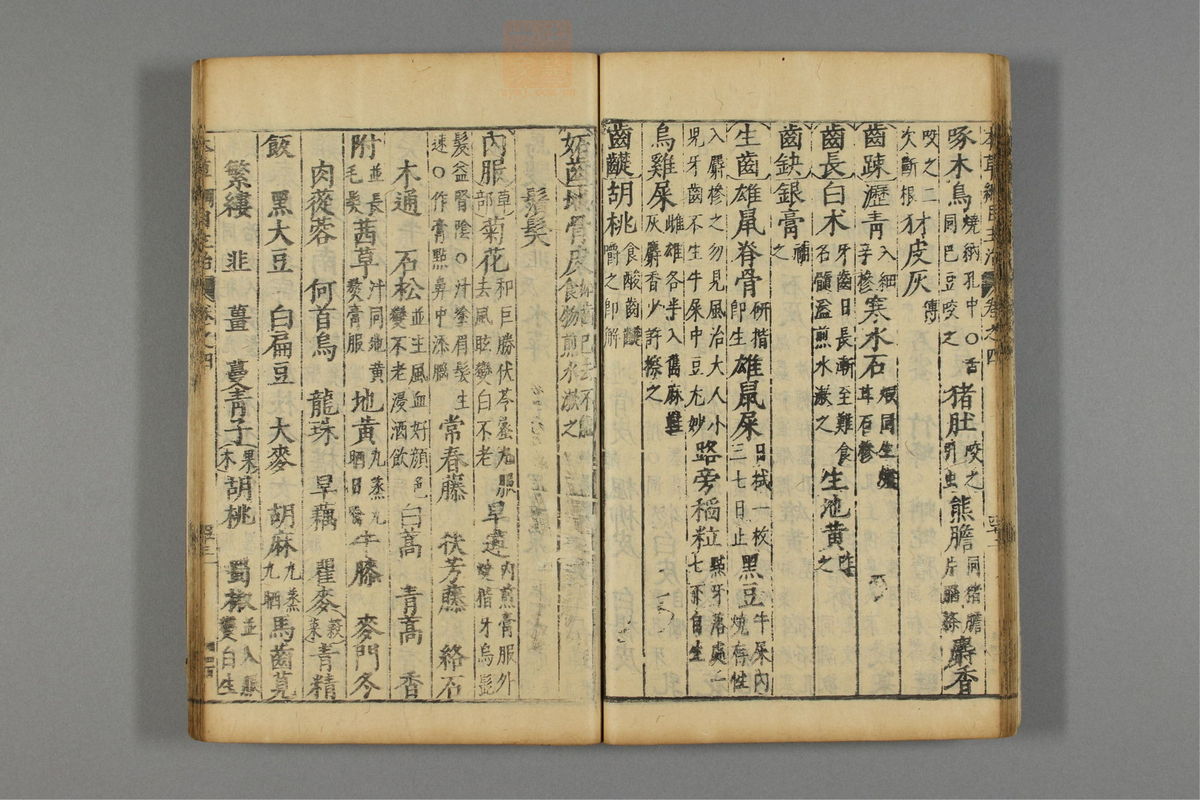 本草綱目主治 卷之四
啄木鳥燒納孔中○舌同巴豆咬之 猪肚咬之引虫 熊膽同猪膽片腦搽 麝香
咬之二次斷根 豺皮灰傅
齒疎瀝青入細辛摻 寒水石煆同生爐甘石摻
齒長白术牙齒日長漸至難食名髓溢煎水漱之 生地黃咋之
齒缺銀膏補之
生齒雄鼠脊骨研揩即生 雄鼠屎日拭一枚三七日止 黑豆牛屎內燒存性
入麝摻之勿見風治大人小兒牙齒不生牛屎中豆尤妙 路旁稻粒點牙落處二七下自生
烏雞屎雌雄各半入舊麻鞋灰麝香少許擦之
齒齼胡桃食酸齒齼嚼之即解
妬齒地骨皮食物煎水漱之
鬚髮
內服草部 菊花和巨勝伏苓蜜丸服去風眩變白不老 旱蓮內煎膏服外燒揩牙烏髭
髮益腎陰○汁塗眉髮生速○作膏點鼻中添腦 常春藤 扶芳藤 絡石
木通 石松並主風血好顏色變不老浸酒飲 白蒿 青蒿 香
附並長毛髮 茜草汁同地黃熬膏服 地黃九蒸九晒日噙 牛膝 麥門冬
肉蓯蓉 何首烏 龍珠 旱藕 瞿麥穀菜 青精
飯 黑大豆 白扁豆 大麥 胡麻九蒸九晒 馬齒莧
蘩縷 韭 薑 蔓青子果木 胡桃 蜀椒並入服變白生
本草綱目主治 卷之四